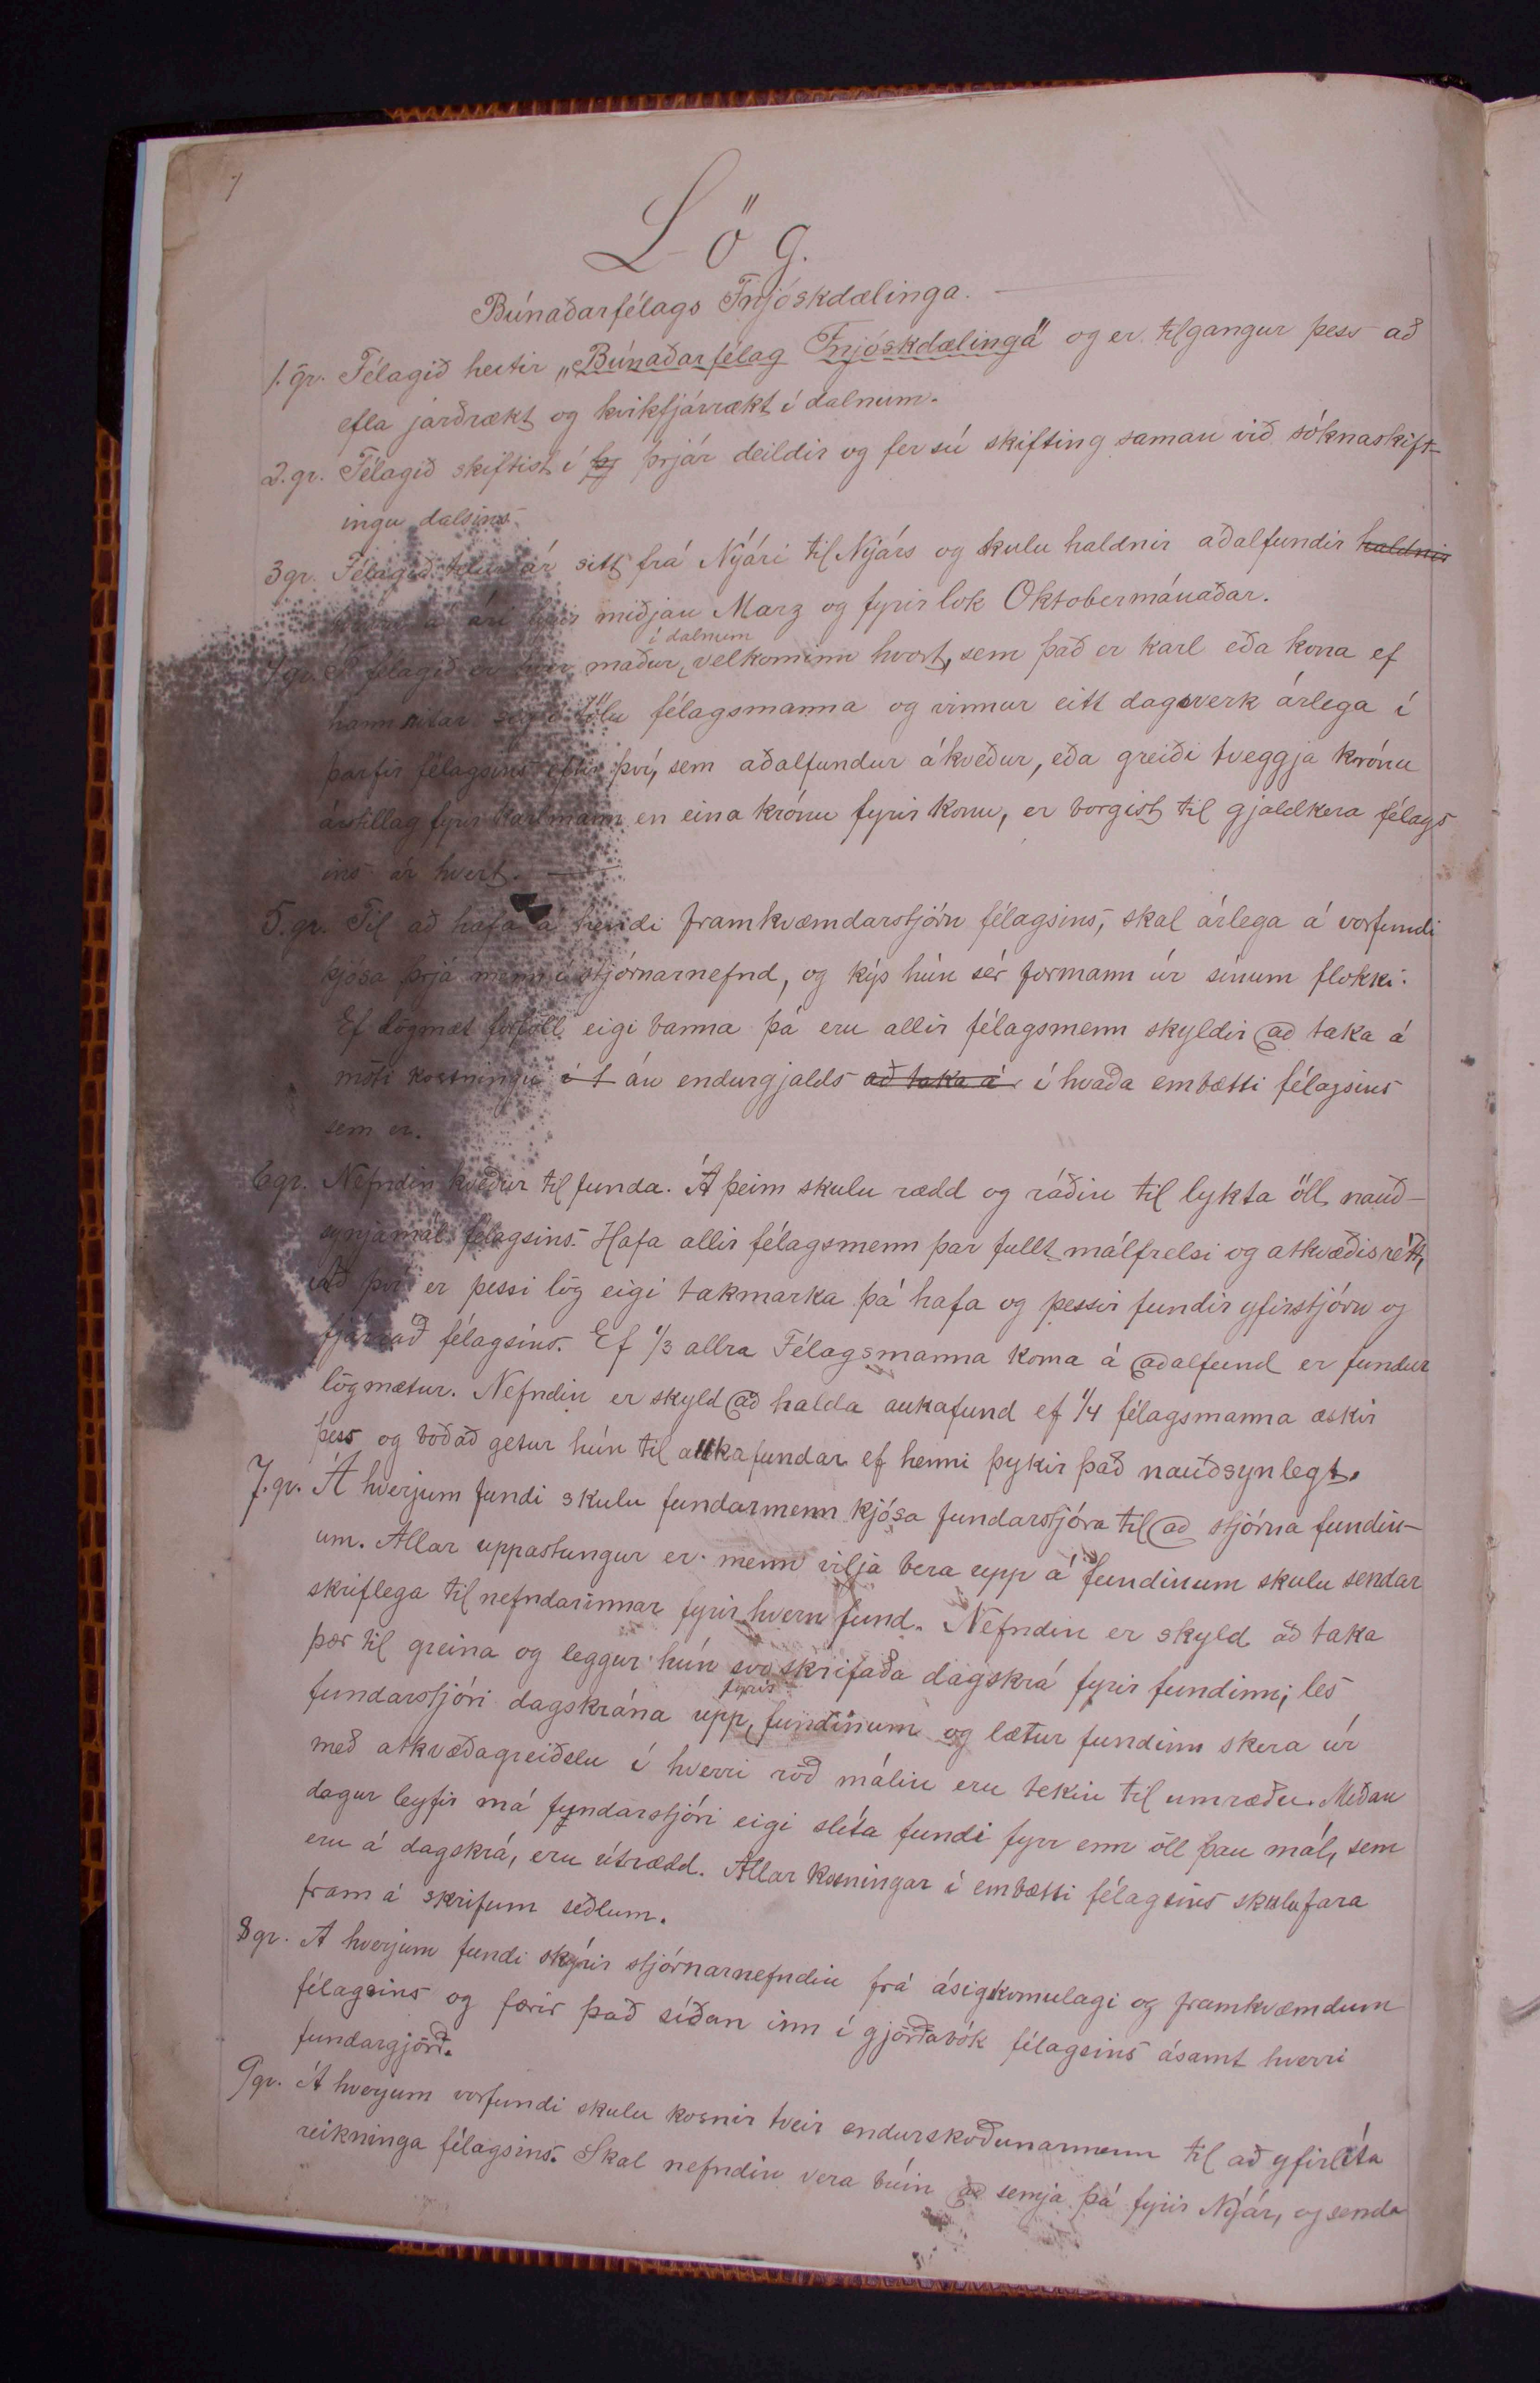 1
Lög.
Búnaðarfélags Fnjóskdælinga.
1. gr. Félagið heitir „Búnaðarfélag Fnjóskdælinga" og er tilgangur þess að
efla jarðrækt og kvikfjárrækt í dalnum.
2. gr. Félagið skiftist í þrj þrjár deildir og fer sú skifting saman við sóknaskift-
ingu dalsins.
3 gr. Félagið telur ár sitt frá Nýári til Nýárs og skulu haldnir aðalfundir haldnir
á ári fyrir miðjan Marz og fyrir lok Oktobermánaðar.
í dalnum
4 gr. Í félagið er hver maður, velkominn hvort, sem það er karl eða kona ef
hann ritar sig í tölu félagsmanna og vinnur eitt dagsverk árlega í
þarfir félagsins eftir því, sem aðalfundur ákveður, eða greiði tveggja krónu
árstillag fyrir karlmann en eina krónu fyrir konu, er borgist til gjaldkera félags
ins ár hvert. —
5. gr. Til að hafa á hendi framkvæmdarstjórn félagsins, skal árlega á vorfundi
kjósa þrjá menn í stjórnarnefnd, og kýs hún sér formann úr sínum flokki.
Ef lögmæt forföll eigi banna þá eru allir félagsmenn skyldir að taka á
móti kosningu í t án endurgjalds að taka á í hvaða embætti félagsins
sem er.
6 gr. Nefndin kveður til funda. Á þeim skulu rædd og ráðin til lykta öll nauð-
synjamál félagsins. Hafa allir félagsmenn þar fullt málfrelsi og atkvæðisrétt,
að því er þessi lög eigi takmarka þá hafa og þessir fundir yfirstjórn og
fjárráð félagsins. Ef 1/3 allra Félagsmanna koma á aðalfund er fundur
lögmætur. Nefndin er skyld að halda aukafund ef 1/4 félagsmanna æskir
þess og boðað getur hún til aukafundar ef henni þykir það nauðsynlegt.
7. gr. Á hverjum fundi skulu fundarmenn kjósa fundarstjóra til að stjórna fundin-
um. Allar uppastungur er menn vilja bera upp á fundinum skulu sendar
skriflega til nefndarinnar fyrir hvern fund. Nefndin er skyld að taka
þær til greina og leggur hún svo skrifaða dagskrá fyrir fundinn; les
fyrir
fundarstjóri dagskrána upp, fundinum og lætur fundinn skera úr
með atkvæðagreiðslu í hverri röð málin eru tekin til umræðu. Meðan
dagur leyfir má fundarstjóri eigi slíta fundi fyrr enn öll þau mál, sem
eru á dagskrá, eru útrædd. Allar kosningar í embætti félagsins skulu fara
fram á skrifum seðlum.
8 gr. Á hverjum fundi skýrir stjórnarnefndin frá ásigkomulagi og framkvæmdum
félagsins og færir það síðan inn í gjörðabók félagsins ásamt hverri
fundargjörð.
9 gr. Á hverjum vorfundi skulu kosnir tveir endurskoðunarmenn til að yfirlíta
reikninga félagsins. Skal nefndin vera búin að semja þá fyrir Nýár, og senda